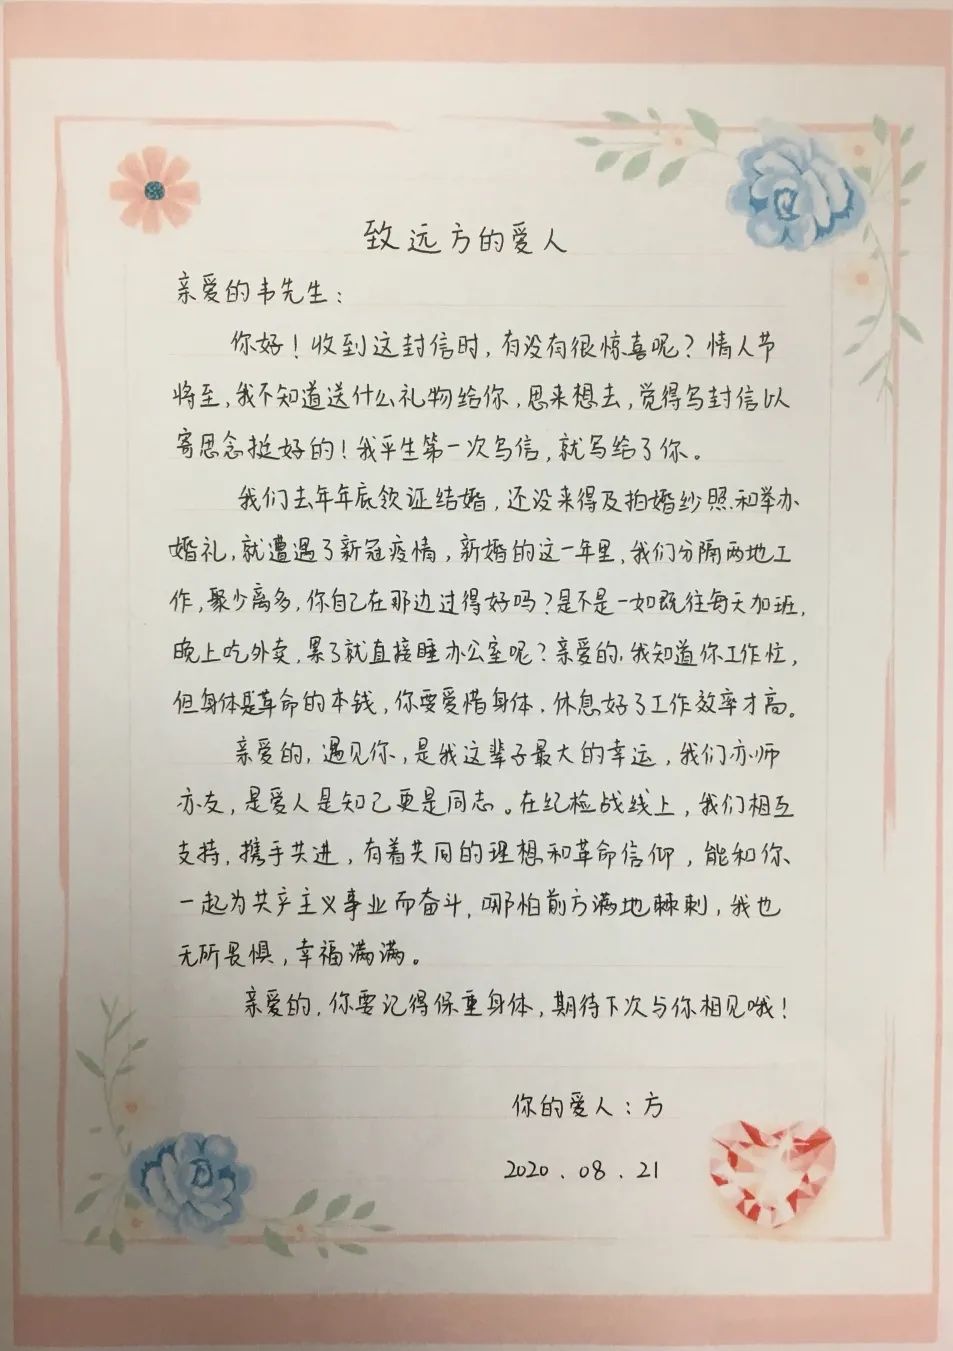 致远方的爱人
亲爱的韦先生：
你好！收到这封信时，有没有很惊喜呢？情人节
将至，我不知道送什么礼物给你，思来想去，觉得写封信以
寄思念挺好的！我平生第一次写信，就写给了你。
我们去年年底领证结婚，还没来得及拍婚纱照和举办
婚礼，就遭遇了新冠疫情，新婚的这一年里，我们分隔两地工
作，聚少离多，你自己在那边过得好吗？是不是一如既往每天加班，
晚上吃外卖，累了就直接睡办公室呢？亲爱的，我知道你工作忙，
但身体是革命的本钱，你要爱惜身体，休息好了工作效率才高。
亲爱的，遇见你，是我这辈子最大的幸运，我们亦师
亦友，是爱人是知己更是同志。在纪检战线上，我们相互
支持，携手共进，有着共同的理想和革命信仰，能和你
一起为共产主义事业而奋斗，哪怕前方满地棘刺，我也
无所畏惧，幸福满满。
亲爱的，你要记得保重身体，期待下次与你相见哦！
你的爱人：方
2020.08.21